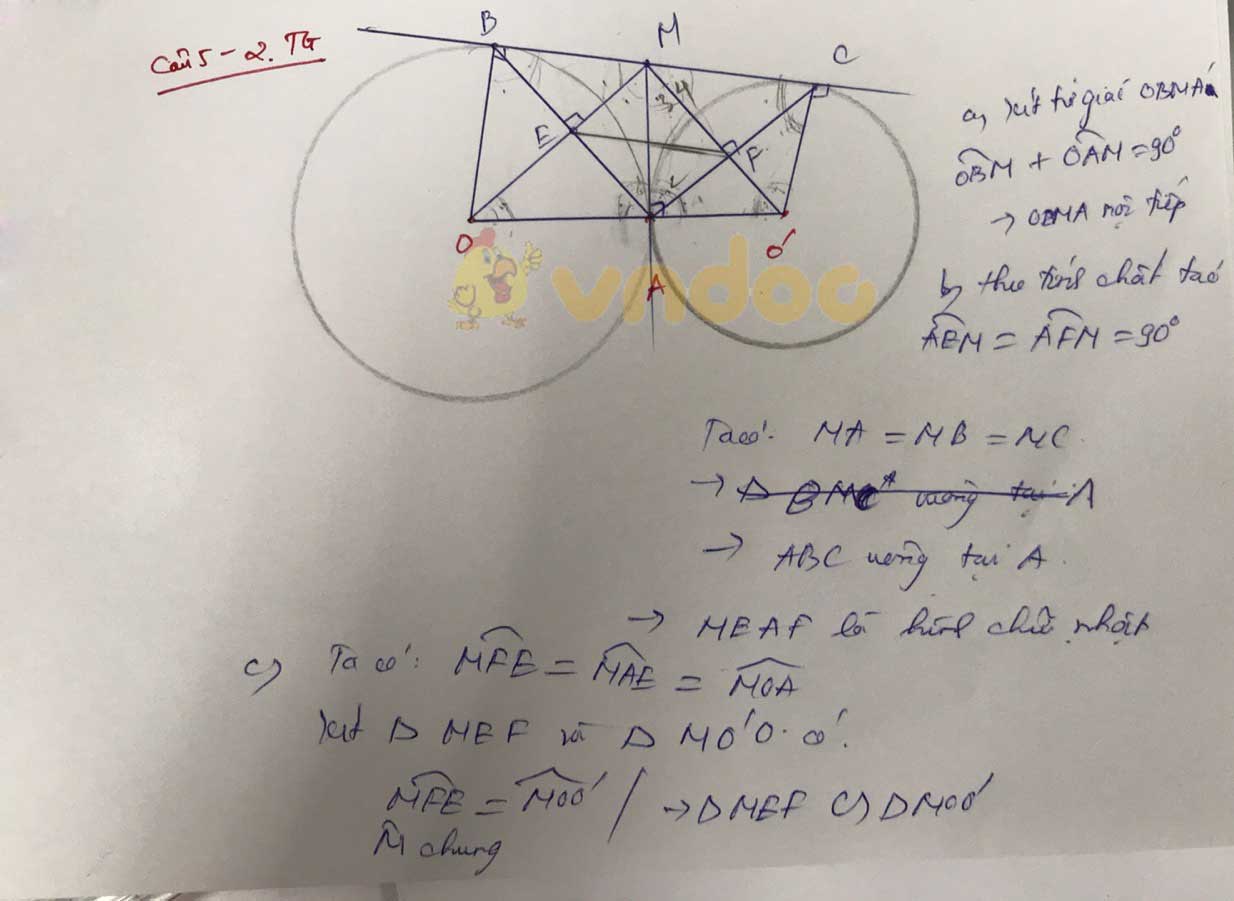 Câu 5 - 2. TG
B M C
E F
3 4
2
O A O'
vndoc
a, Xét tứ giác OBMA
OBM + OAM = 90°
→ OBMA nội tiếp
b, theo tính chất ta có
AEM = AFM = 90°
Ta có: MA = MB = MC
→ vuông tại A
→ ABC vuông tại A.
→ MEAF là hình chữ nhật
c, Ta có: MFE = MAE = MOA
Xét Δ MEF và Δ MO'O. có:
MFE = MOO' / → Δ MEF ∽ Δ MOO'
M chung